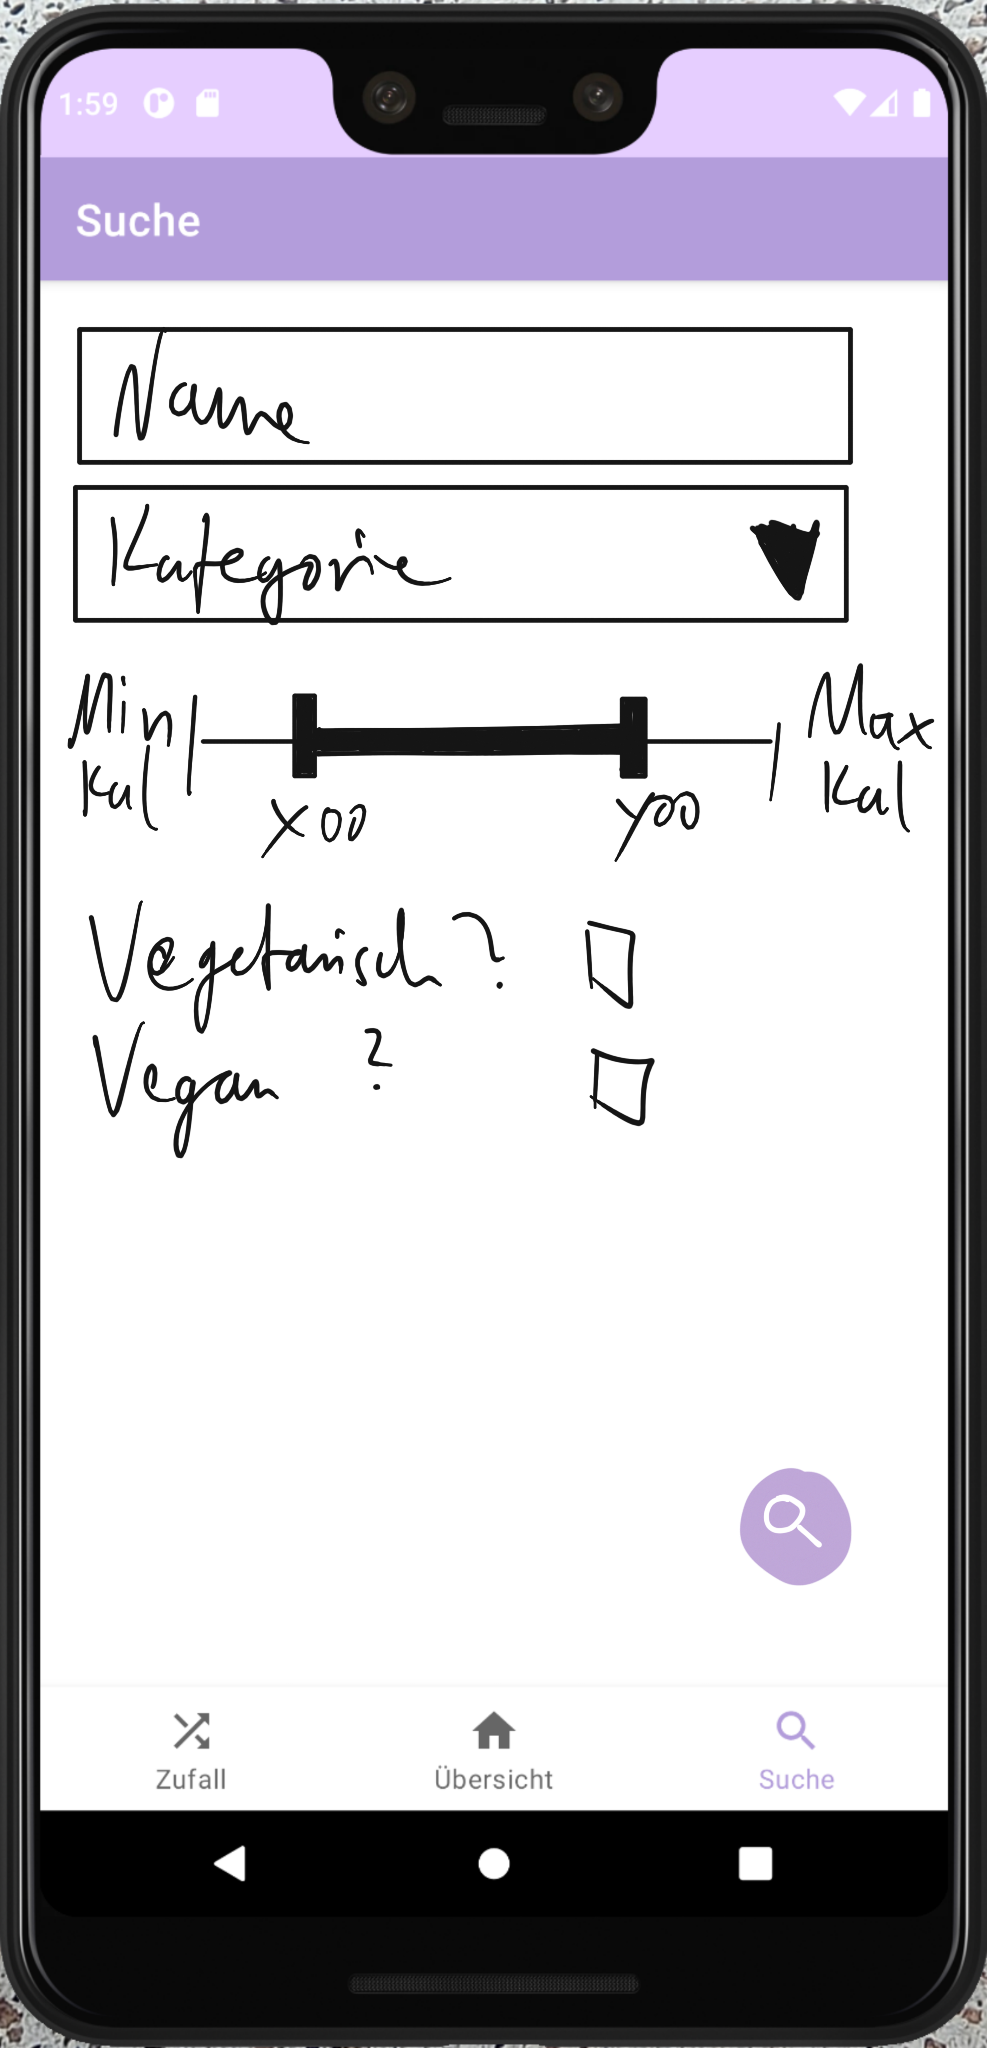 1:59
Suche
Name
Kategorie
Min Max
Kal Kal
X00 Y00
Vegetarisch?
Vegan ?
Zufall Übersicht Suche